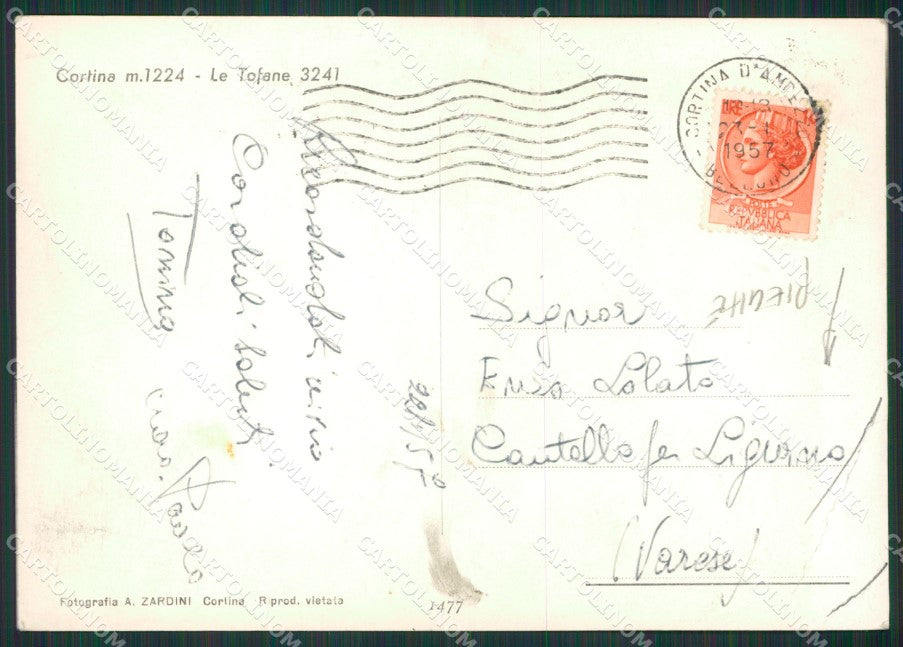 Cortina m.1224 - Le Tofane 3241
CORTINA D'AMPEZZO
1957
BELLUNO
LIRE
POSTE
REPVBBLICA
ITALIANA
Cordiali saluti
Tonino
ciao.
Signor
Enzo Lolato
Cantello per Ligurno
(Varese)
PIEGHE
Fotografia A. ZARDINI Cortina Riprod. vietata
1477
CARTOLINOMANIA